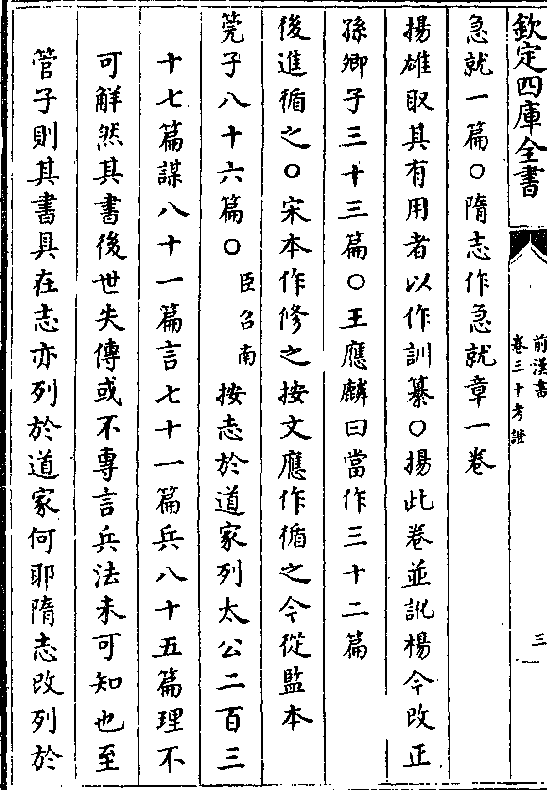 欽定四庫全書
前漢書
卷三十考證
三
急就一篇○隋志作急就章一卷
揚雄取其有用者以作訓纂○揚此卷並訛楊今改正
孫卿子三十三篇○王應麟曰當作三十二篇
後進循之○宋本作修之按文應作循之今從監本
筦子八十六篇○臣召南按志於道家列太公二百三
十七篇謀八十一篇言七十一篇兵八十五篇理不
可解然其書後世失傳或不專言兵法未可知也至
管子則其書具在志亦列於道家何耶隋志改列於